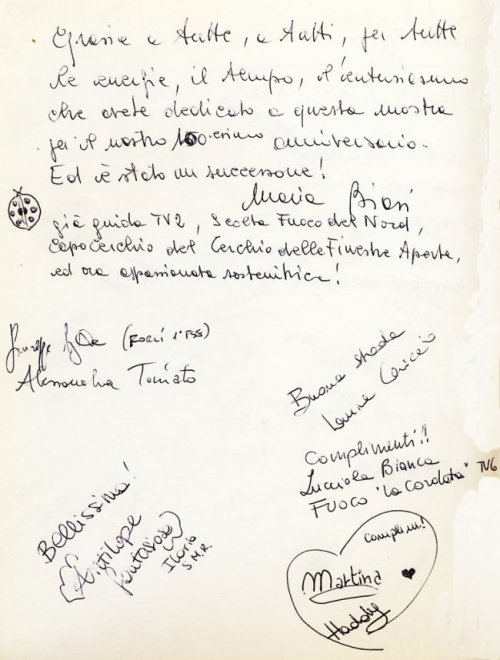 Grazie a tutte, a tutti, per tutte
le energie, il tempo, l'entusiasmo
che avete dedicato a questa mostra
per il nostro 100esimo anniversario.
Ed è stato un successone!
Maria
già guida TV2, Scolta Fuoco del Nord,
capocerchio del Cerchio delle Finestre Aperte,
ed ora appassionata sostenitrice!
Giuseppe (FORLÌ 1° FSS)
Alessandra Tomato
Buona strada
Laura
Complimenti!!
Lucciola Bianca
FUOCO "La Cordata" TV6
Bellissima!
Antilope
fantasiosa
Ilaria
S.M.R.
complim!
Martina
Haddy